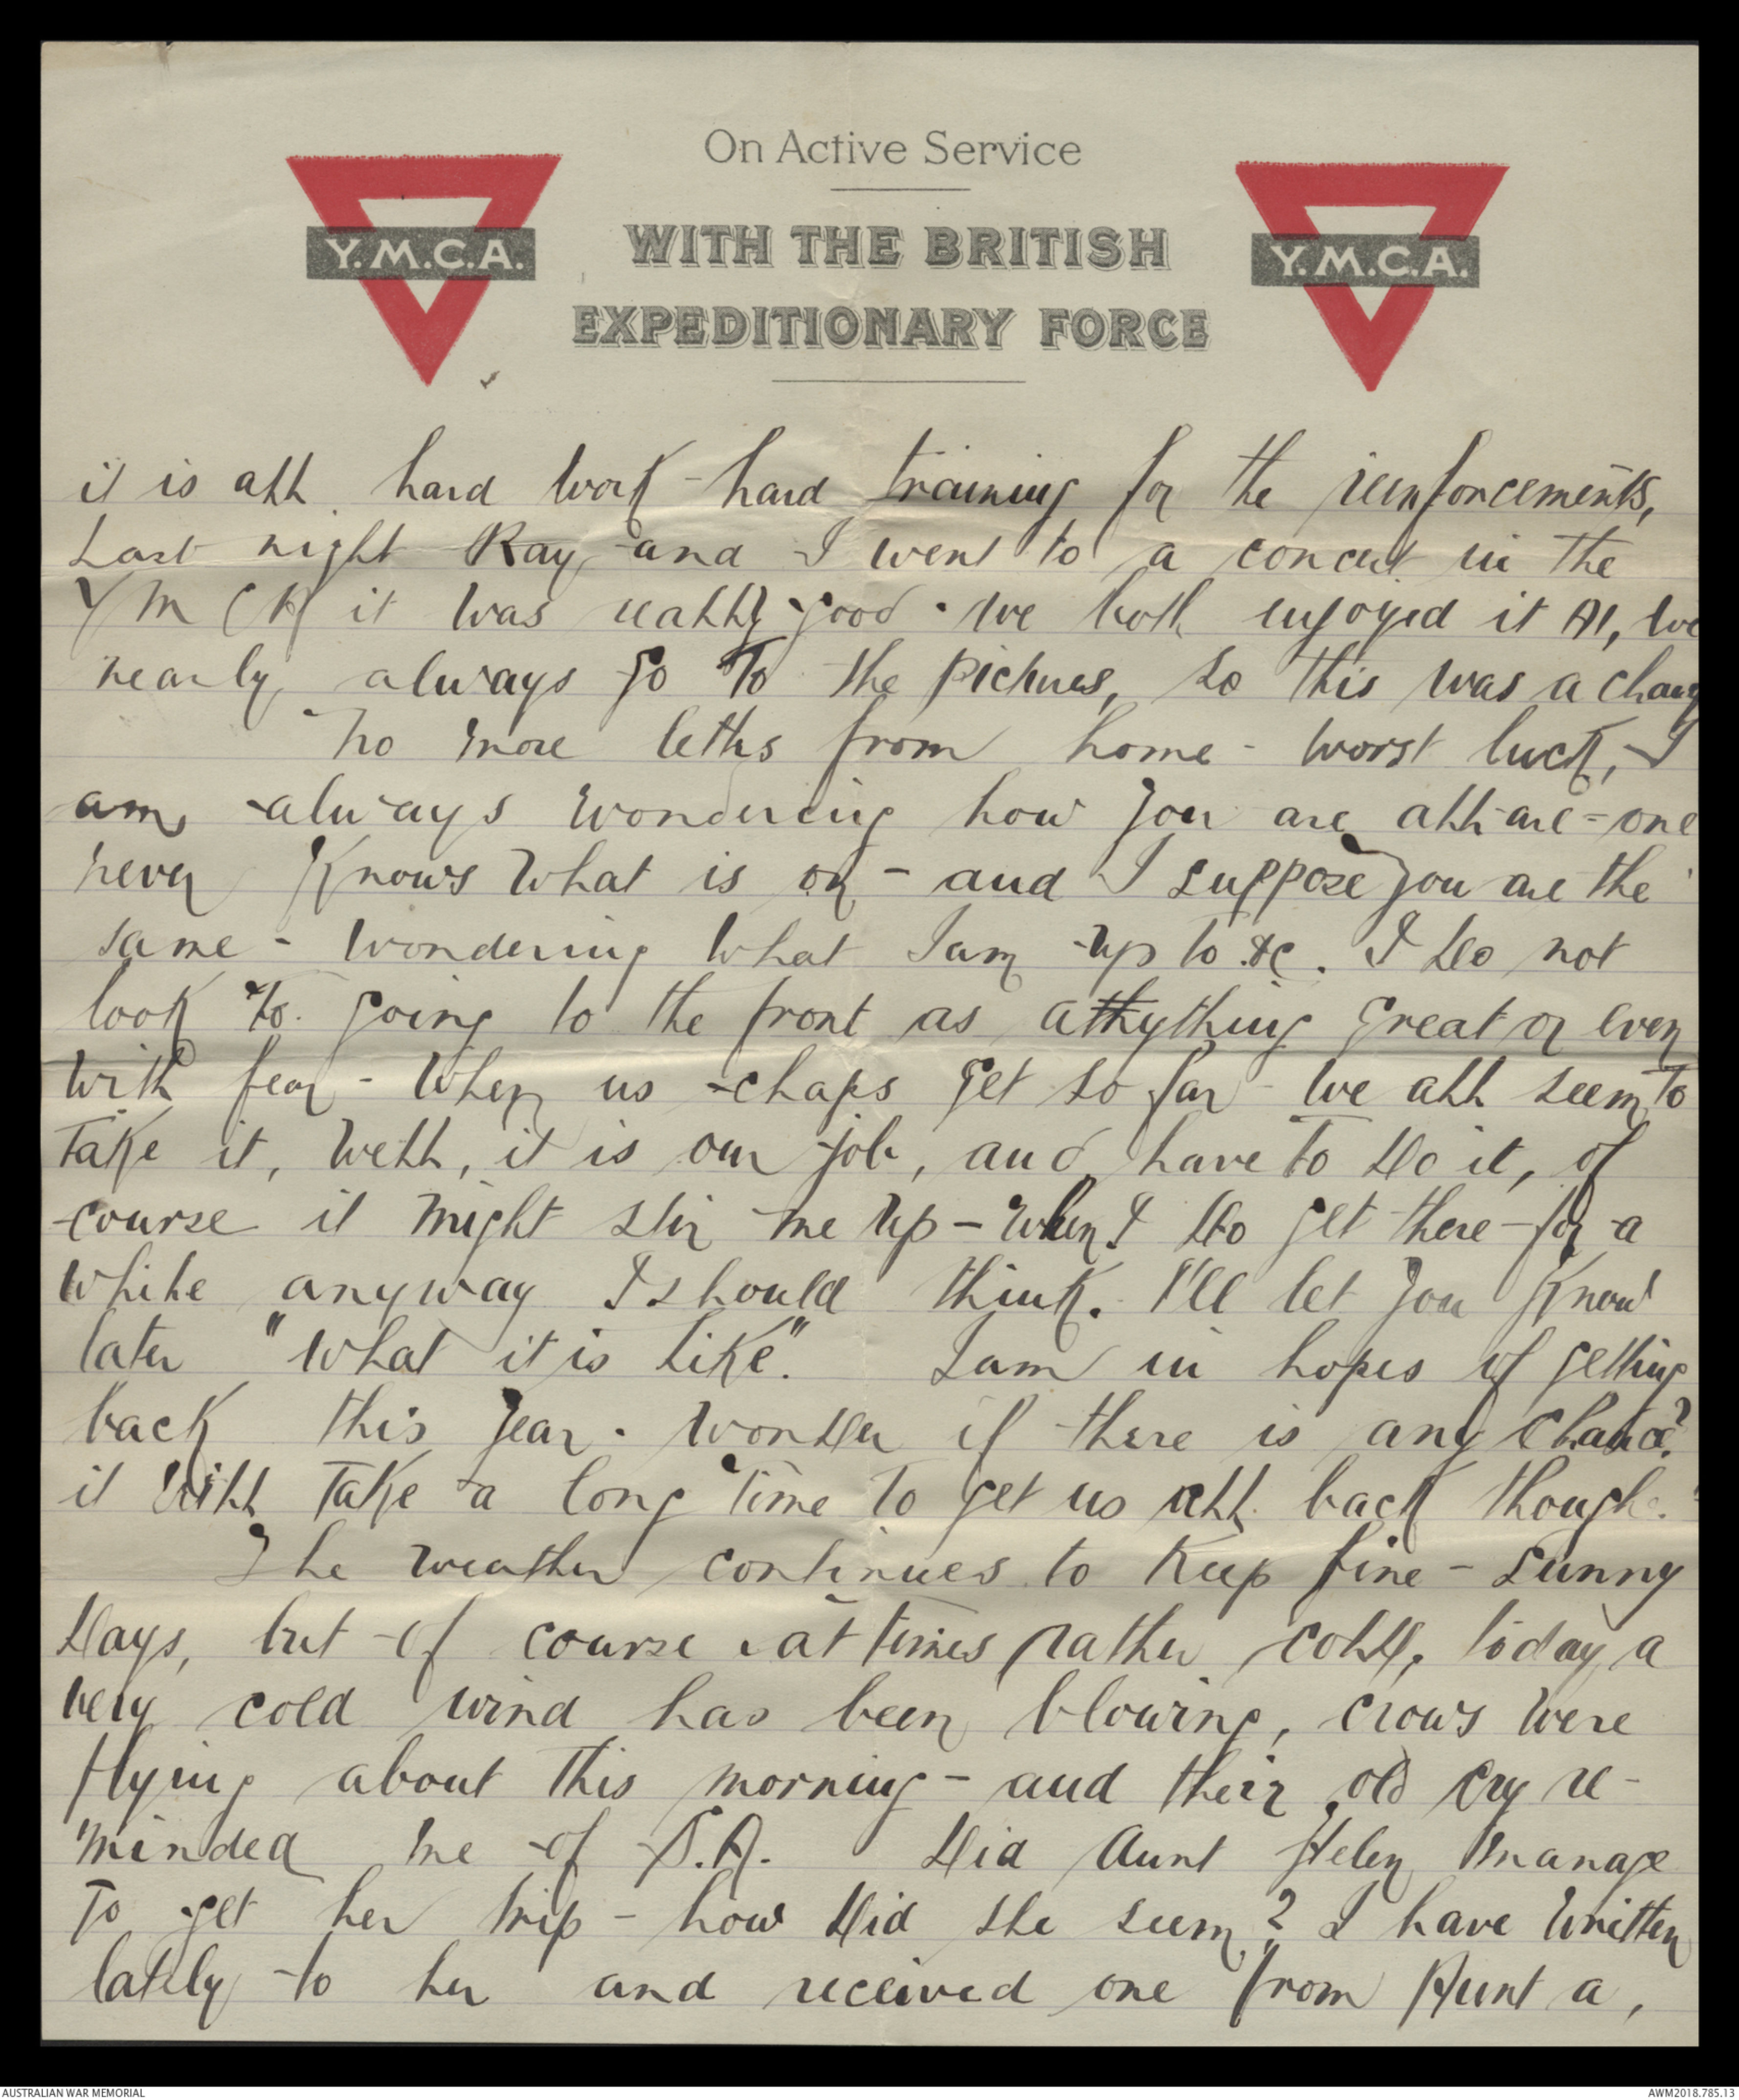 On Active Service
Y.M.C.A.
WITH THE BRITISH
EXPEDITIONARY FORCE
Y.M.C.A.
it is all hard work - hard training for the reinforcements,
Last night Ray and I went to a concert in the
YMCA it was really good - we both enjoyed it A1, we
nearly always go to the pictures, so this was a chang
No more letters from home - worst luck, I
am always wondering how you are all are - one
never knows what is on - and I suppose you are the
same - wondering what I am up to &c. I do not
look to going to the front as anything great or even
with fear - when us chaps get so far - we all seem to
take it, well, it is our job, and have to do it, of
course it might stir me up - when I do get there - for a
while anyway I should think. I'll let you know
later "what it is like". I am in hopes of getting
back this year. Wonder if there is any chance?
it will take a long time to get us all back though.
The weather continues to keep fine - sunny
days, but of course at times rather cold, today a
very cold wind has been blowing, crows were
flying about this morning - and their old cry re-
minded me of S.A. Did Aunt Helen manage
to get her trip - how did she seem? I have written
lately to her and received one from Aunt A,
AUSTRALIAN WAR MEMORIAL
AWM2018.785.13